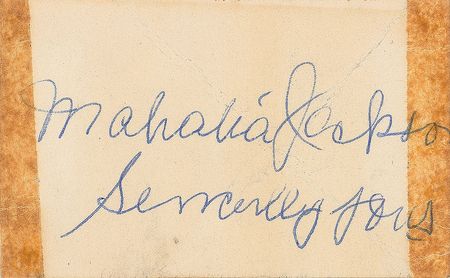 Mahalia Jackson
Sincerelly yours